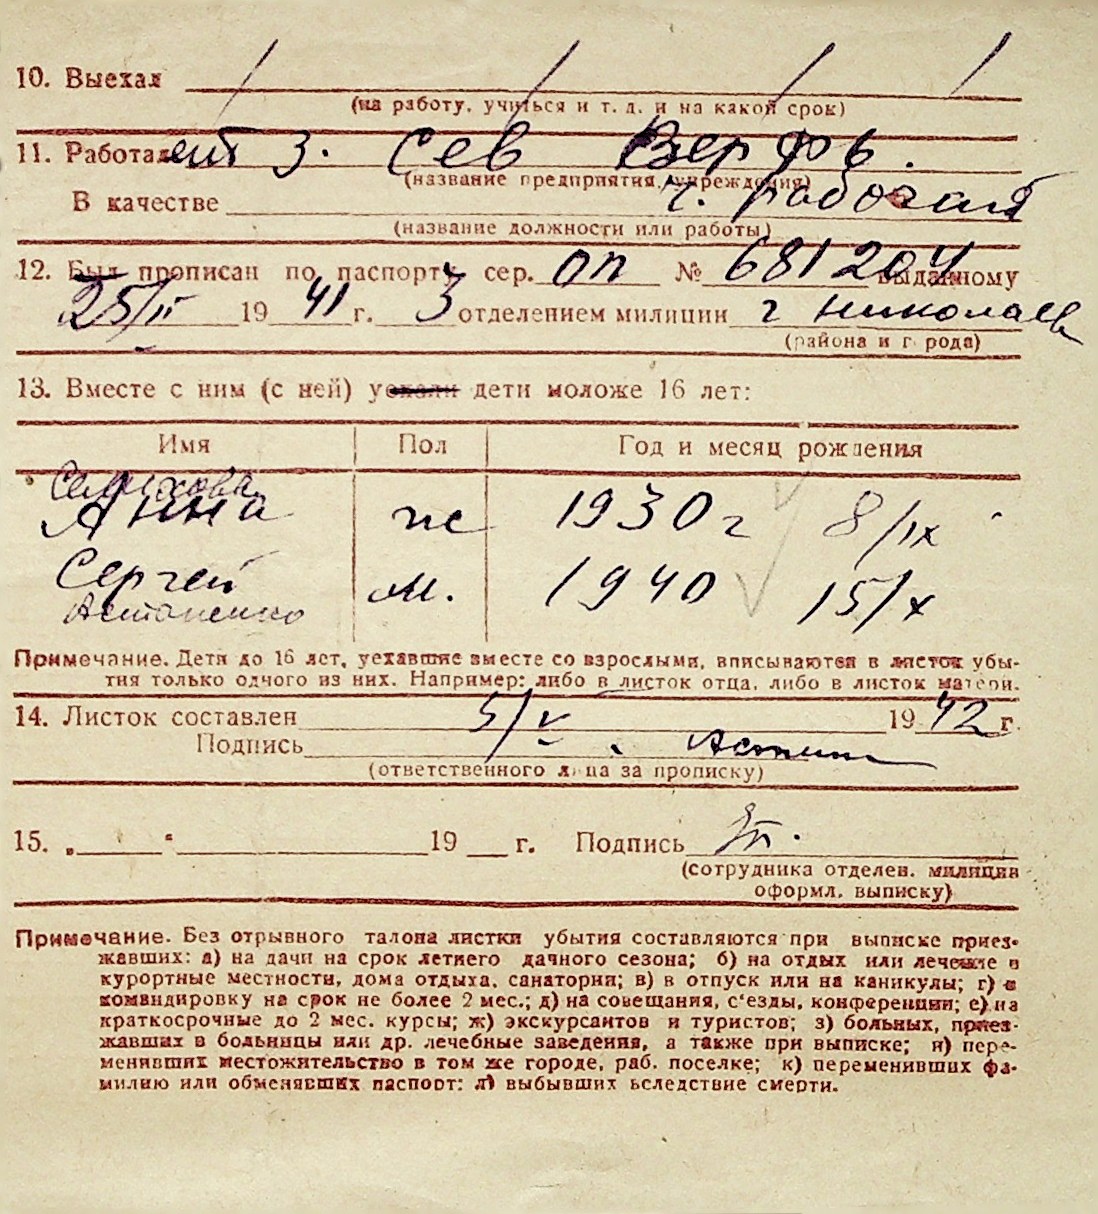 10. Выехал
(на работу, учиться и т. д. и на какой срок)
11. Работал ет з. Сев Верфь.
(название предприятия, учреждения)
В качестве ч. рабочай
(название должности или работы)
12. Был прописан по паспорту сер. ОП № 681204 выданному
25/II 1941 г. 3 отделением милиции г Николаев
(района и города)
13. Вместе с ним (с ней) уехали дети моложе 16 лет:
Имя Пол Год и месяц рождения
Анна ж 1930 г 8/IX
Сергей м. 1940 15/X
Астапенко
Примечание. Дети до 16 лет, уехавшие вместе со взрослыми, вписываются в листок убы-
тия только одного из них. Например: либо в листок отца, либо в листок матери.
14. Листок составлен 5/V 1942 г.
Подпись
(ответственного лица за прописку)
15. „ “ 19 г. Подпись
(сотрудника отделен. милиции
оформл. выписку)
Примечание. Без отрывного талона листки убытия составляются при выписке приез-
жавших: а) на дачи на срок летнего дачного сезона; б) на отдых или лечение в
курортные местности, дома отдыха, санатории; в) в отпуск или на каникулы; г) в
командировку на срок не более 2 мес.; д) на совещания, с'езды, конференции; е) на
краткосрочные до 2 мес. курсы; ж) экскурсантов и туристов; з) больных, приез-
жавших в больницы или др. лечебные заведения, а также при выписке; и) пере-
менивших местожительство в том же городе, раб. поселке; к) переменивших фа-
милию или обменявших паспорт; л) выбывших вследствие смерти.